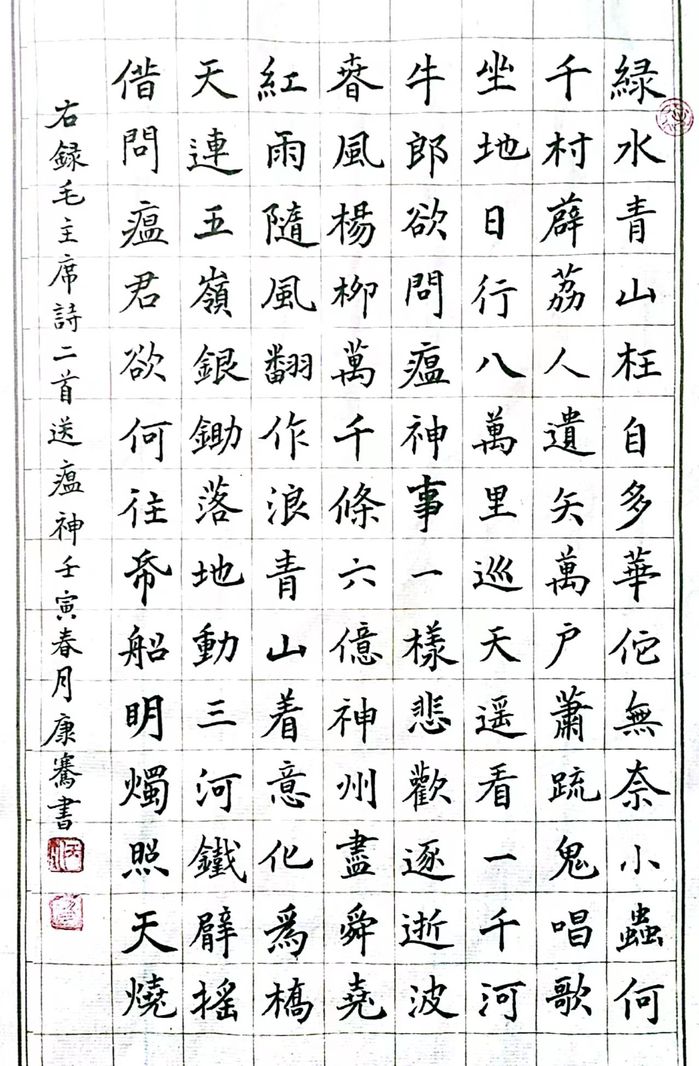 緑水青山枉自多華佗無奈小蟲何
千村薜荔人遺矢萬户蕭疏鬼唱歌
坐地日行八萬里巡天遥看一千河
牛郎欲問瘟神事一樣悲歡逐逝波
春風楊柳萬千條六億神州盡舜堯
紅雨隨風翻作浪青山着意化爲橋
天連五嶺銀鋤落地動三河鐵臂摇
借問瘟君欲何往帋船明燭照天燒
右録毛主席詩二首送瘟神壬寅春月康騫書